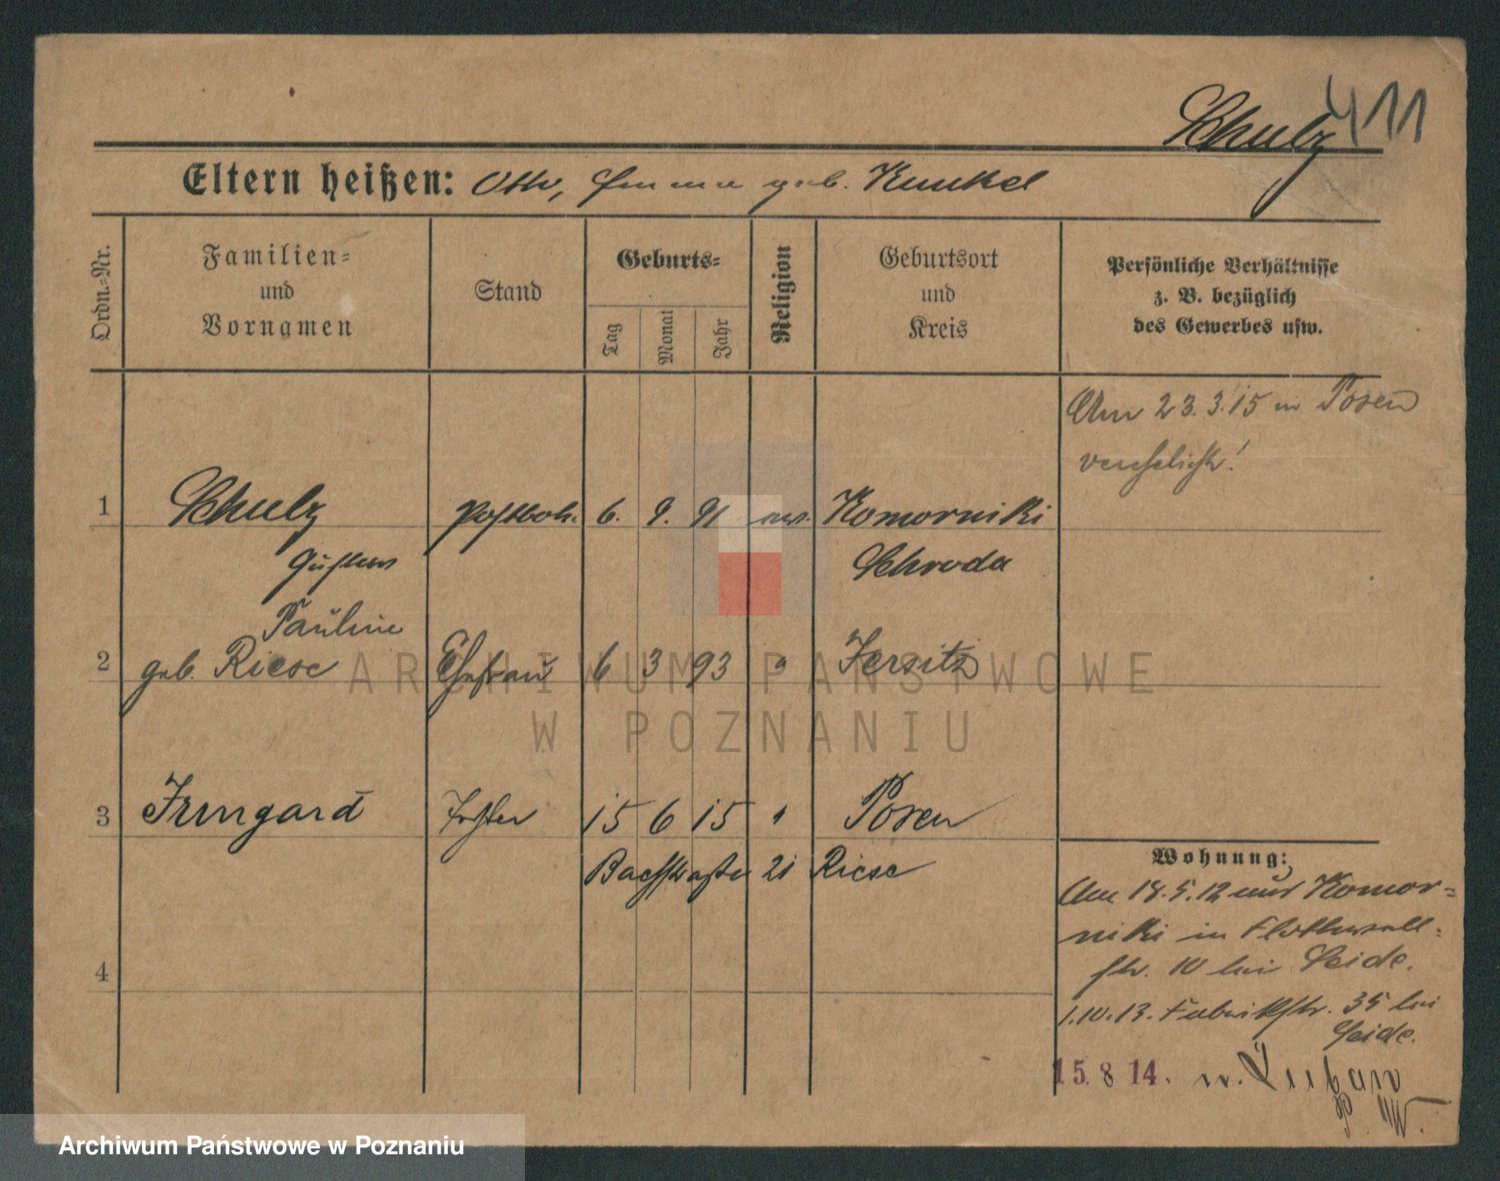 Schulz 411
Eltern heißen: Otto, Emma geb. Kunkel
Ordn.-Nr.
Familien- und Vornamen
Stand
Geburts-
Tag Monat Jahr
Religion
Geburtsort und Kreis
Persönliche Verhältnisse
z. B. bezüglich
des Gewerbes usw.
Am 23.3.15 in Posen
verehelicht!
1 Schulz Postbot. 6. 9. 91 ev. Komorniki
Gustav Schroda
Pauline
2 geb. Riese Ehefrau 6 3 93 " Jersitz
3 Irmgard Tochter 15 6 15 " Posen
Bachstraße 21 Riese
4
Wohnung:
Am 18.5.12 aus Komor-
niki in Flottwell-
str. 10 bei Seide.
1.10.13. Fabrikstr. 35 bei
Seide.
15.8 14. n. Luban
ARCHIWUM PAŃSTWOWE
W POZNANIU
Archiwum Państwowe w Poznaniu